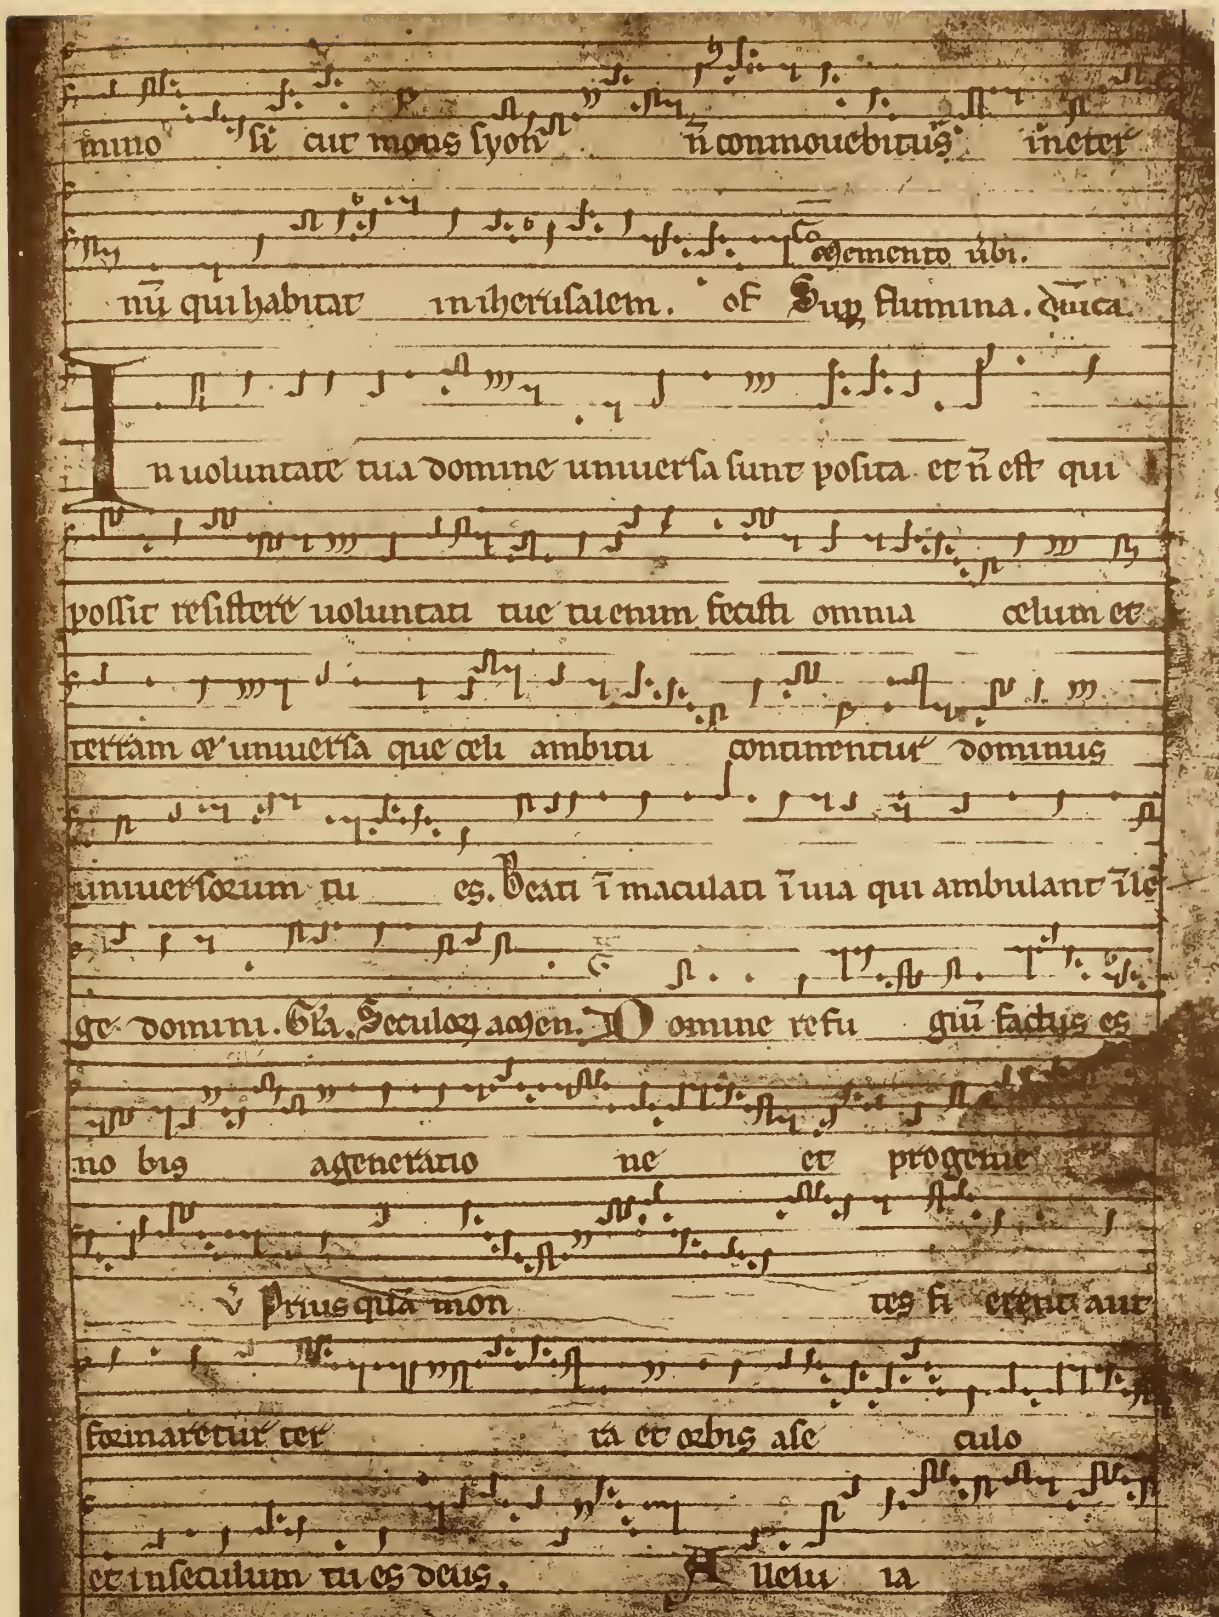 mino si cut mons syon n̄ conmouebitur ineter
Co Memento ūbi.
nū qui habitat in iherusalem. of Sup flumina. dn̄ica.
In uoluntate tua domine uniuersa sunt posita et n̄ est qui
possit resistere uoluntati tue tu enim fecisti omnia celum et
terram et uniuersa que celi ambitu continentur dominus
uniuersorum tu es. Beati ī maculati ī uia qui ambulant ī le
ge domini. Gl̄a. Seculoꝝ amen. Domine refu giū factus es
no bis a generatio ne et progenie
v̄ Prius quā mon tes fi erent aut
formaretur ter ra et orbis a se culo
et in seculum tu es deus. A lleiu ia